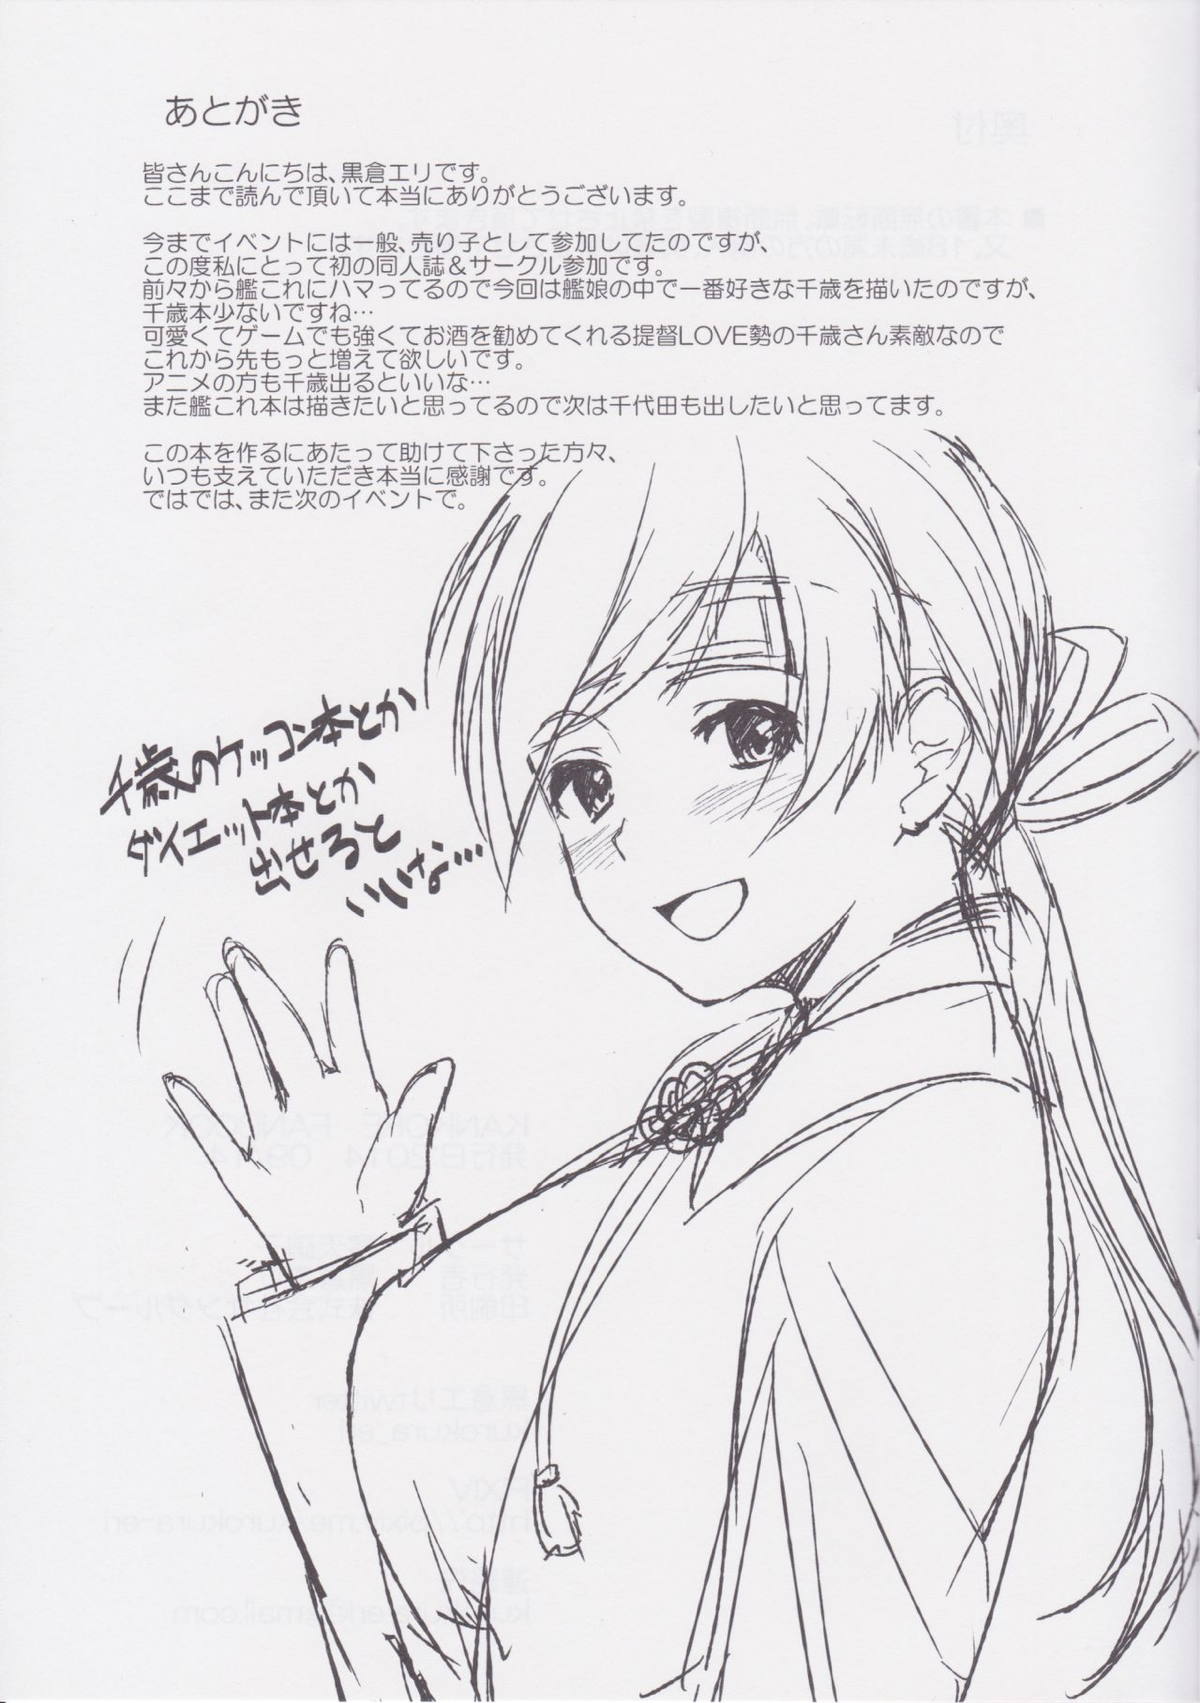 あとがき
皆さんこんにちは、黒倉エリです。
ここまで読んで頂いて本当にありがとうございます。
今までイベントには一般、売り子として参加してたのですが、
この度私にとって初の同人誌＆サークル参加です。
前々から艦これにハマってるので今回は艦娘の中で一番好きな千歳を描いたのですが、
千歳本少ないですね…
可愛くてゲームでも強くてお酒を勧めてくれる提督LOVE勢の千歳さん素敵なので
これから先もっと増えて欲しいです。
アニメの方も千歳出るといいな…
また艦これ本は描きたいと思ってるので次は千代田も出したいと思ってます。
この本を作るにあたって助けて下さった方々、
いつも支えていただき本当に感謝です。
ではでは、また次のイベントで。
千歳のケッコン本とか
ダイエット本とか
出せると
いいな…